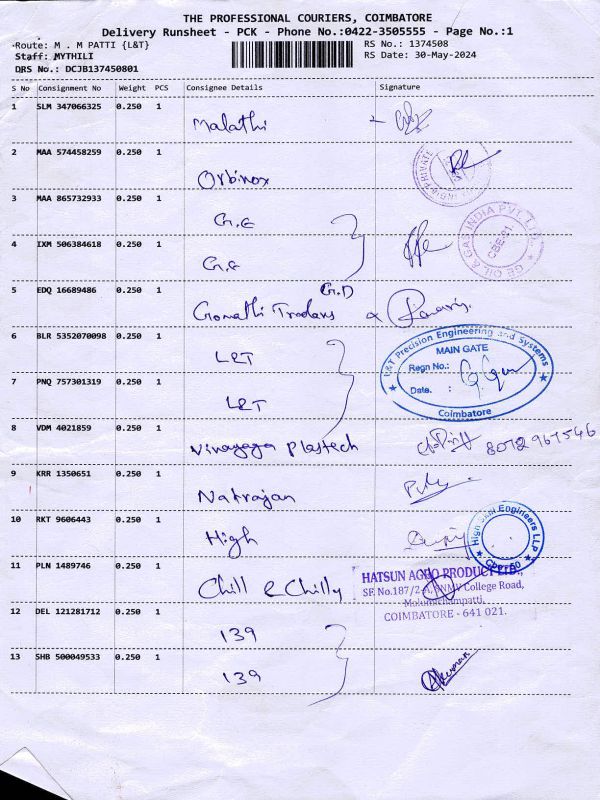 THE PROFESSIONAL COURIERS, COIMBATORE
Delivery Runsheet - PCK - Phone No.:0422-3505555 - Page No.:1
Route: M . M PATTI {L&T} RS No.: 1374508
Staff: MYTHILI RS Date: 30-May-2024
DRS No.: DCJB137450801
S No Consignment No Weight PCS Consignee Details Signature
1 SLM 347066325 0.250 1 Malathi
2 MAA 574458259 0.250 1 Orbinox
3 MAA 865732933 0.250 1 G.E
GE OIL & GAS INDIA PVT. LTD.
CBE-21
4 IXM 506384618 0.250 1 G.E
G.D
5 EDQ 16689486 0.250 1 Gomathi Traders
6 BLR 5352070098 0.250 1 L&T
L&T Precision Engineering and Systems
MAIN GATE
Regn No.:
Date. :
Coimbatore
7 PNQ 757301319 0.250 1 L&T
8 VDM 4021859 0.250 1 Vinayaga Plastech
9 KRR 1350651 0.250 1 Natrajan
10 RKT 9606443 0.250 1 High
Engineers LLP
11 PLN 1489746 0.250 1 Chill & Chilly
HATSUN AGRO PRODUCT LTD.,
SF. No.187/2-A, College Road,
COIMBATORE - 641 021.
12 DEL 121281712 0.250 1 139
13 SHB 500049533 0.250 1 139